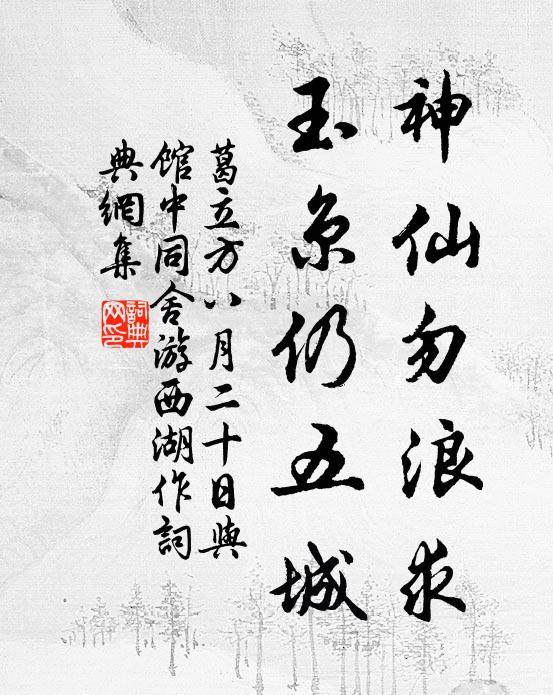 神仙勿浪求
玉京仍五城
葛立方八月二十日與
館中同舍游西湖作詞
典網集
詞典
网印